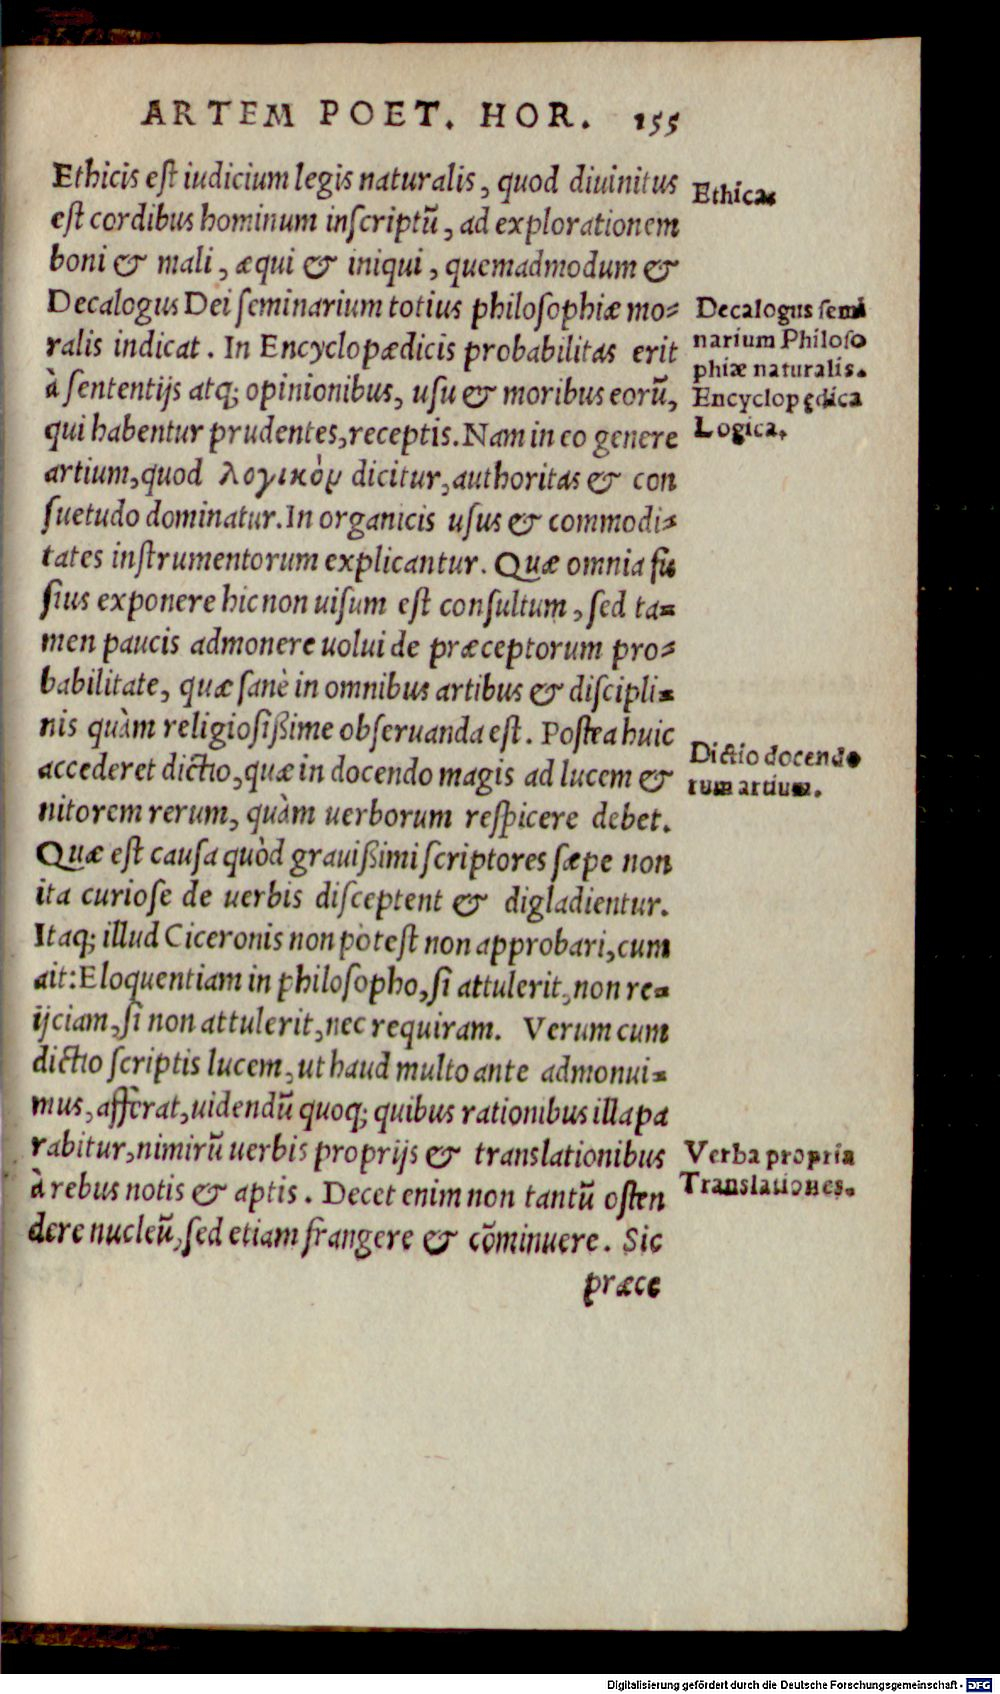 ARTEM POET. HOR. 155
Ethicis est iudicium legis naturalis, quod diuinitus
Ethica
est cordibus hominum inscriptũ, ad explorationem
boni & mali, æqui & iniqui, quemadmodum &
Decalogus Dei seminarium totius philosophiæ mo-
Decalogus semi
ralis indicat. In Encyclopædicis probabilitas erit
narium Philoso
phiæ naturalis.
à sententijs atq; opinionibus, usu & moribus eorũ,
Encyclopędica
qui habentur prudentes, receptis. Nam in eo genere
Logica.
artium, quod λογικὸν dicitur, authoritas & con
suetudo dominatur. In organicis usus & commodi-
tates instrumentorum explicantur. Quæ omnia fu
sius exponere hic non uisum est consultum, sed ta-
men paucis admonere uolui de præceptorum pro-
babilitate, quæ sanè in omnibus artibus & discipli-
nis quàm religiosißime obseruanda est. Postea huic
Dictio docendo
accederet dictio, quæ in docendo magis ad lucem &
rum artium.
nitorem rerum, quàm uerborum respicere debet.
Quæ est causa quòd grauißimi scriptores sæpe non
ita curiose de uerbis disceptent & digladientur.
Itaq; illud Ciceronis non potest non approbari, cum
ait: Eloquentiam in philosopho, si attulerit, non re-
ijciam, si non attulerit, nec requiram. Verum cum
dictio scriptis lucem, ut haud multo ante admonui-
mus, afferat, uidendũ quoq; quibus rationibus illa pa
rabitur, nimirũ uerbis proprijs & translationibus
Verba propria
à rebus notis & aptis. Decet enim non tantũ osten
Translationes.
dere nucleũ, sed etiam frangere & cõminuere. Sic
præce
Digitalisierung gefördert durch die Deutsche Forschungsgemeinschaft - DFG